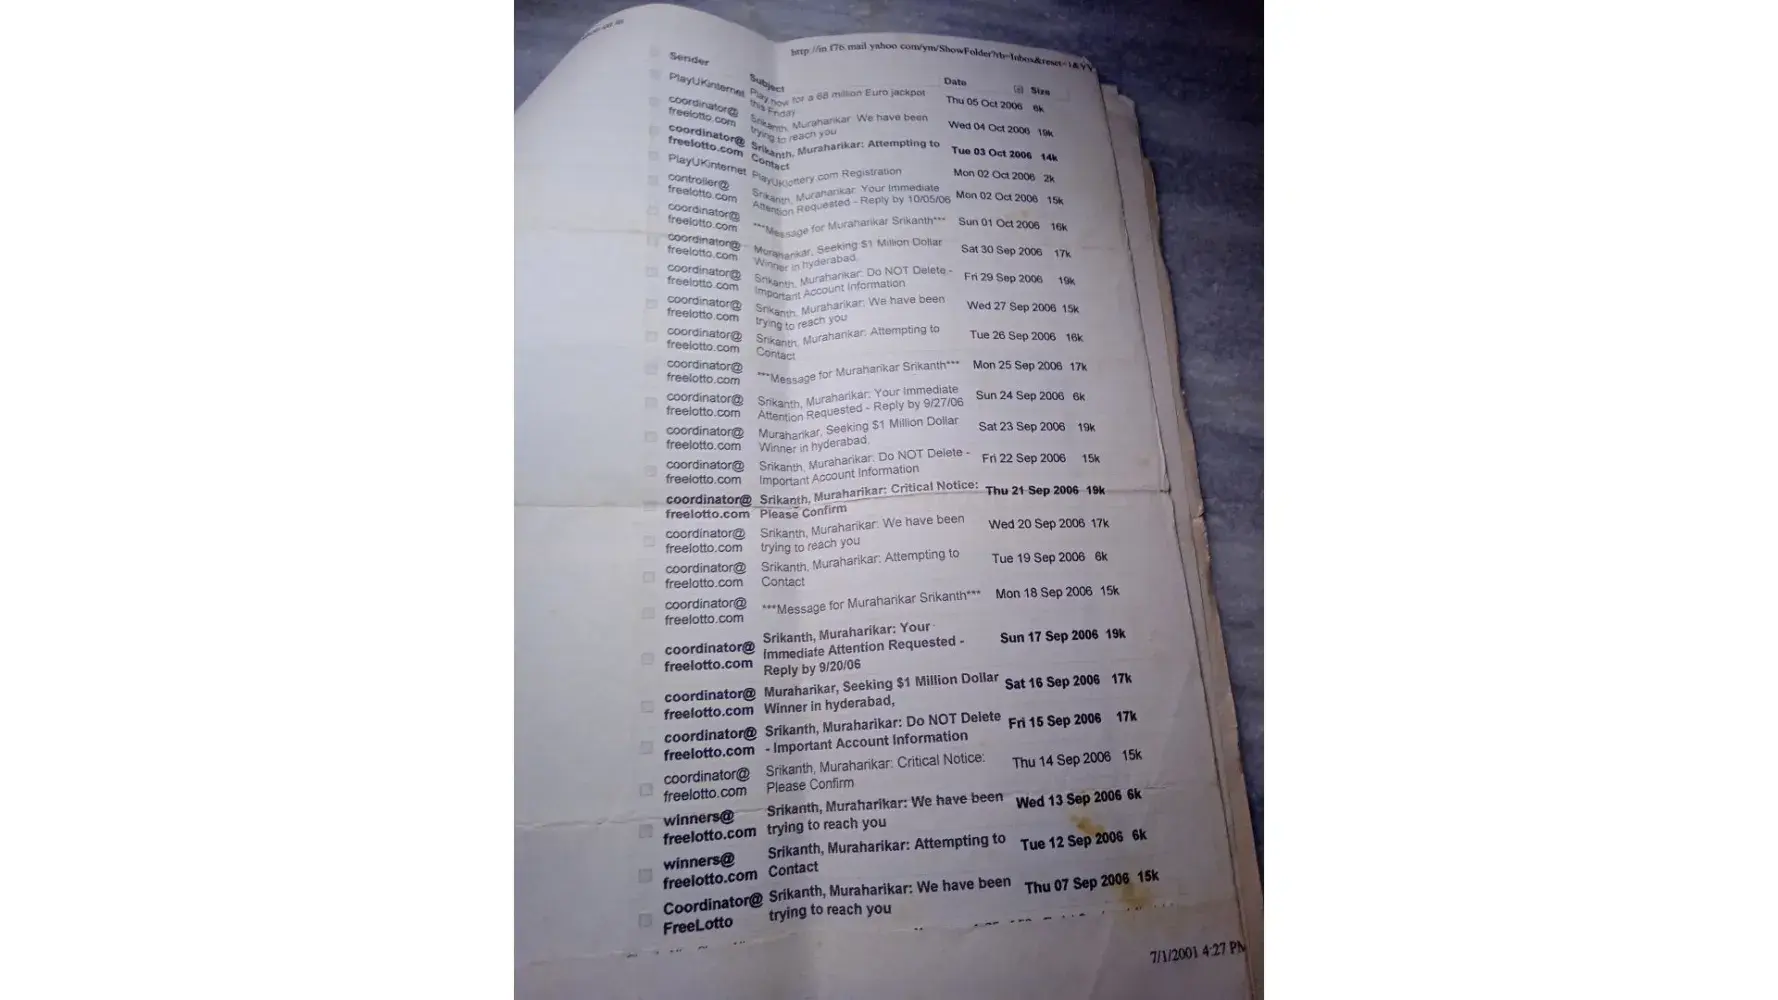 http://in.f76.mail.yahoo.com/ym/ShowFolder?rb=Inbox&reset=1&YY
Sender Subject Date Size
PlayUKinternet Play now for a 68 million Euro jackpot Thu 05 Oct 2006 6k
this Friday
coordinator@ Srikanth, Muraharikar: We have been Wed 04 Oct 2006 19k
freelotto.com trying to reach you
coordinator@ Srikanth, Muraharikar: Attempting to Tue 03 Oct 2006 14k
freelotto.com Contact
PlayUKinternet PlayUKlottery.com Registration Mon 02 Oct 2006 2k
controller@ Srikanth, Muraharikar: Your Immediate Mon 02 Oct 2006 15k
freelotto.com Attention Requested - Reply by 10/05/06
coordinator@ ***Message for Muraharikar Srikanth*** Sun 01 Oct 2006 16k
freelotto.com
coordinator@ Muraharikar, Seeking $1 Million Dollar Sat 30 Sep 2006 17k
freelotto.com Winner in hyderabad,
coordinator@ Srikanth, Muraharikar: Do NOT Delete - Fri 29 Sep 2006 19k
freelotto.com Important Account Information
coordinator@ Srikanth, Muraharikar: We have been Wed 27 Sep 2006 15k
freelotto.com trying to reach you
coordinator@ Srikanth, Muraharikar: Attempting to Tue 26 Sep 2006 16k
freelotto.com Contact
coordinator@ ***Message for Muraharikar Srikanth*** Mon 25 Sep 2006 17k
freelotto.com
coordinator@ Srikanth, Muraharikar: Your Immediate Sun 24 Sep 2006 6k
freelotto.com Attention Requested - Reply by 9/27/06
coordinator@ Muraharikar, Seeking $1 Million Dollar Sat 23 Sep 2006 19k
freelotto.com Winner in hyderabad,
coordinator@ Srikanth, Muraharikar: Do NOT Delete - Fri 22 Sep 2006 15k
freelotto.com Important Account Information
coordinator@ Srikanth, Muraharikar: Critical Notice: Thu 21 Sep 2006 19k
freelotto.com Please Confirm
coordinator@ Srikanth, Muraharikar: We have been Wed 20 Sep 2006 17k
freelotto.com trying to reach you
coordinator@ Srikanth, Muraharikar: Attempting to Tue 19 Sep 2006 6k
freelotto.com Contact
coordinator@ ***Message for Muraharikar Srikanth*** Mon 18 Sep 2006 15k
freelotto.com
coordinator@ Srikanth, Muraharikar: Your Sun 17 Sep 2006 19k
freelotto.com Immediate Attention Requested -
Reply by 9/20/06
coordinator@ Muraharikar, Seeking $1 Million Dollar Sat 16 Sep 2006 17k
freelotto.com Winner in hyderabad,
coordinator@ Srikanth, Muraharikar: Do NOT Delete Fri 15 Sep 2006 17k
freelotto.com - Important Account Information
coordinator@ Srikanth, Muraharikar: Critical Notice: Thu 14 Sep 2006 15k
freelotto.com Please Confirm
winners@ Srikanth, Muraharikar: We have been Wed 13 Sep 2006 6k
freelotto.com trying to reach you
winners@ Srikanth, Muraharikar: Attempting to Tue 12 Sep 2006 6k
freelotto.com Contact
Coordinator@ Srikanth, Muraharikar: We have been Thu 07 Sep 2006 15k
FreeLotto trying to reach you
7/1/2001 4:27 PM